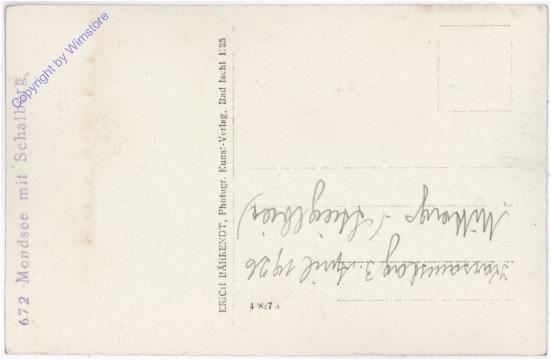 672 Mondsee mit Schafberg.
Copyright by Wimstore
ERICH BÄHRENDT, Photogr. Kunst-Verlag, Bad Ischl 1925
Karsamstag 3. April 1926
Mittags